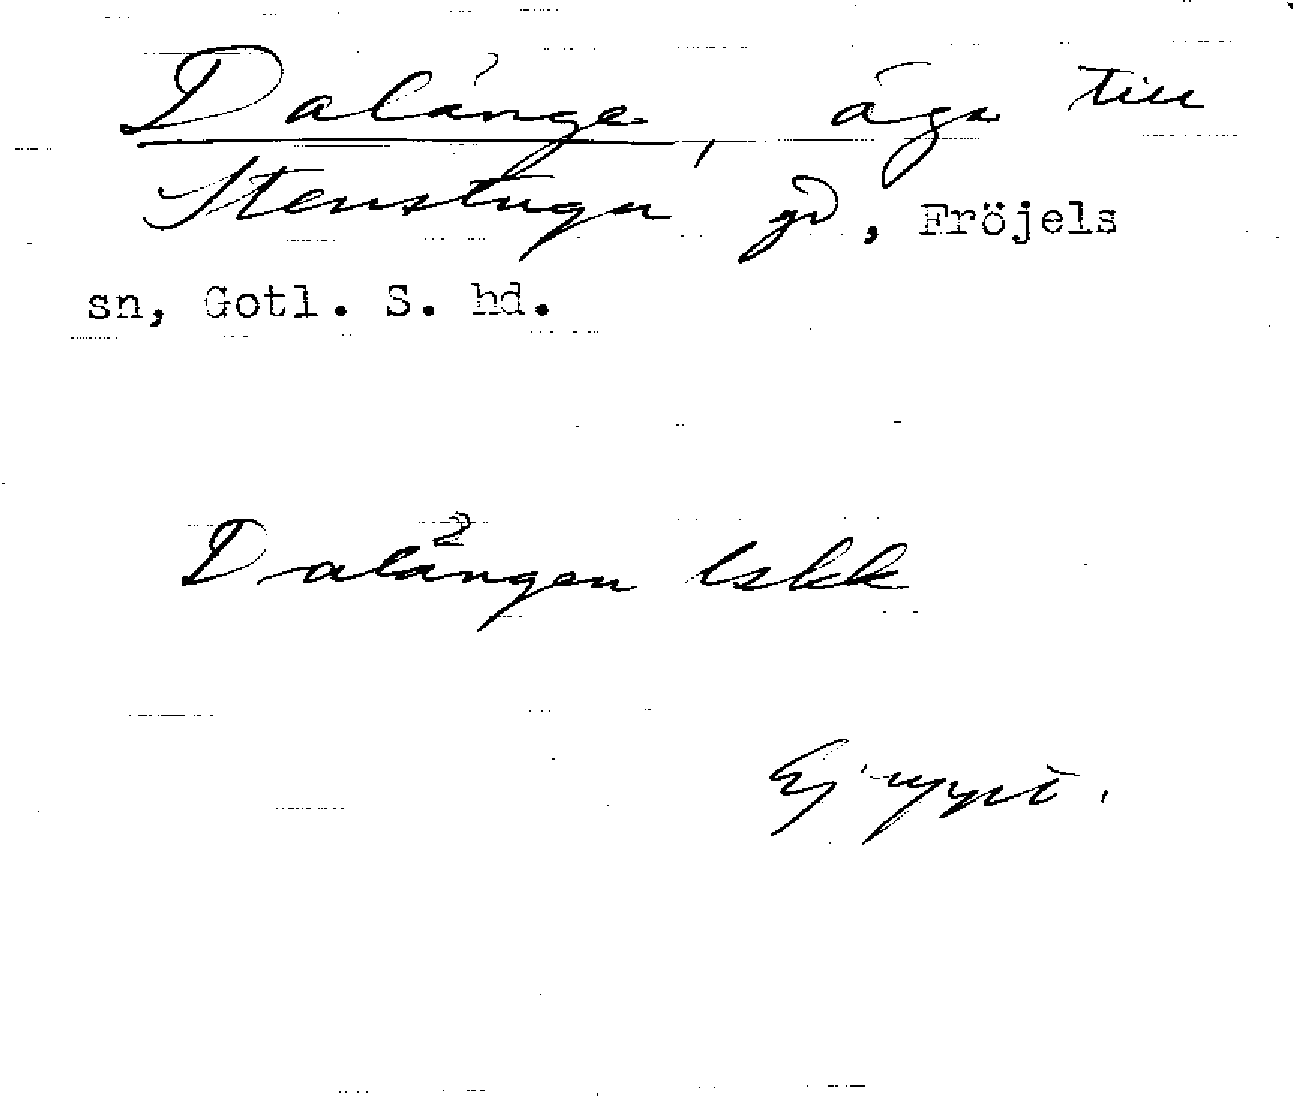 Dalänge, äga till
Stenstugu gd, Fröjels
sn, Gotl. S. hd.
Dalängen lskk
Ej uppt.